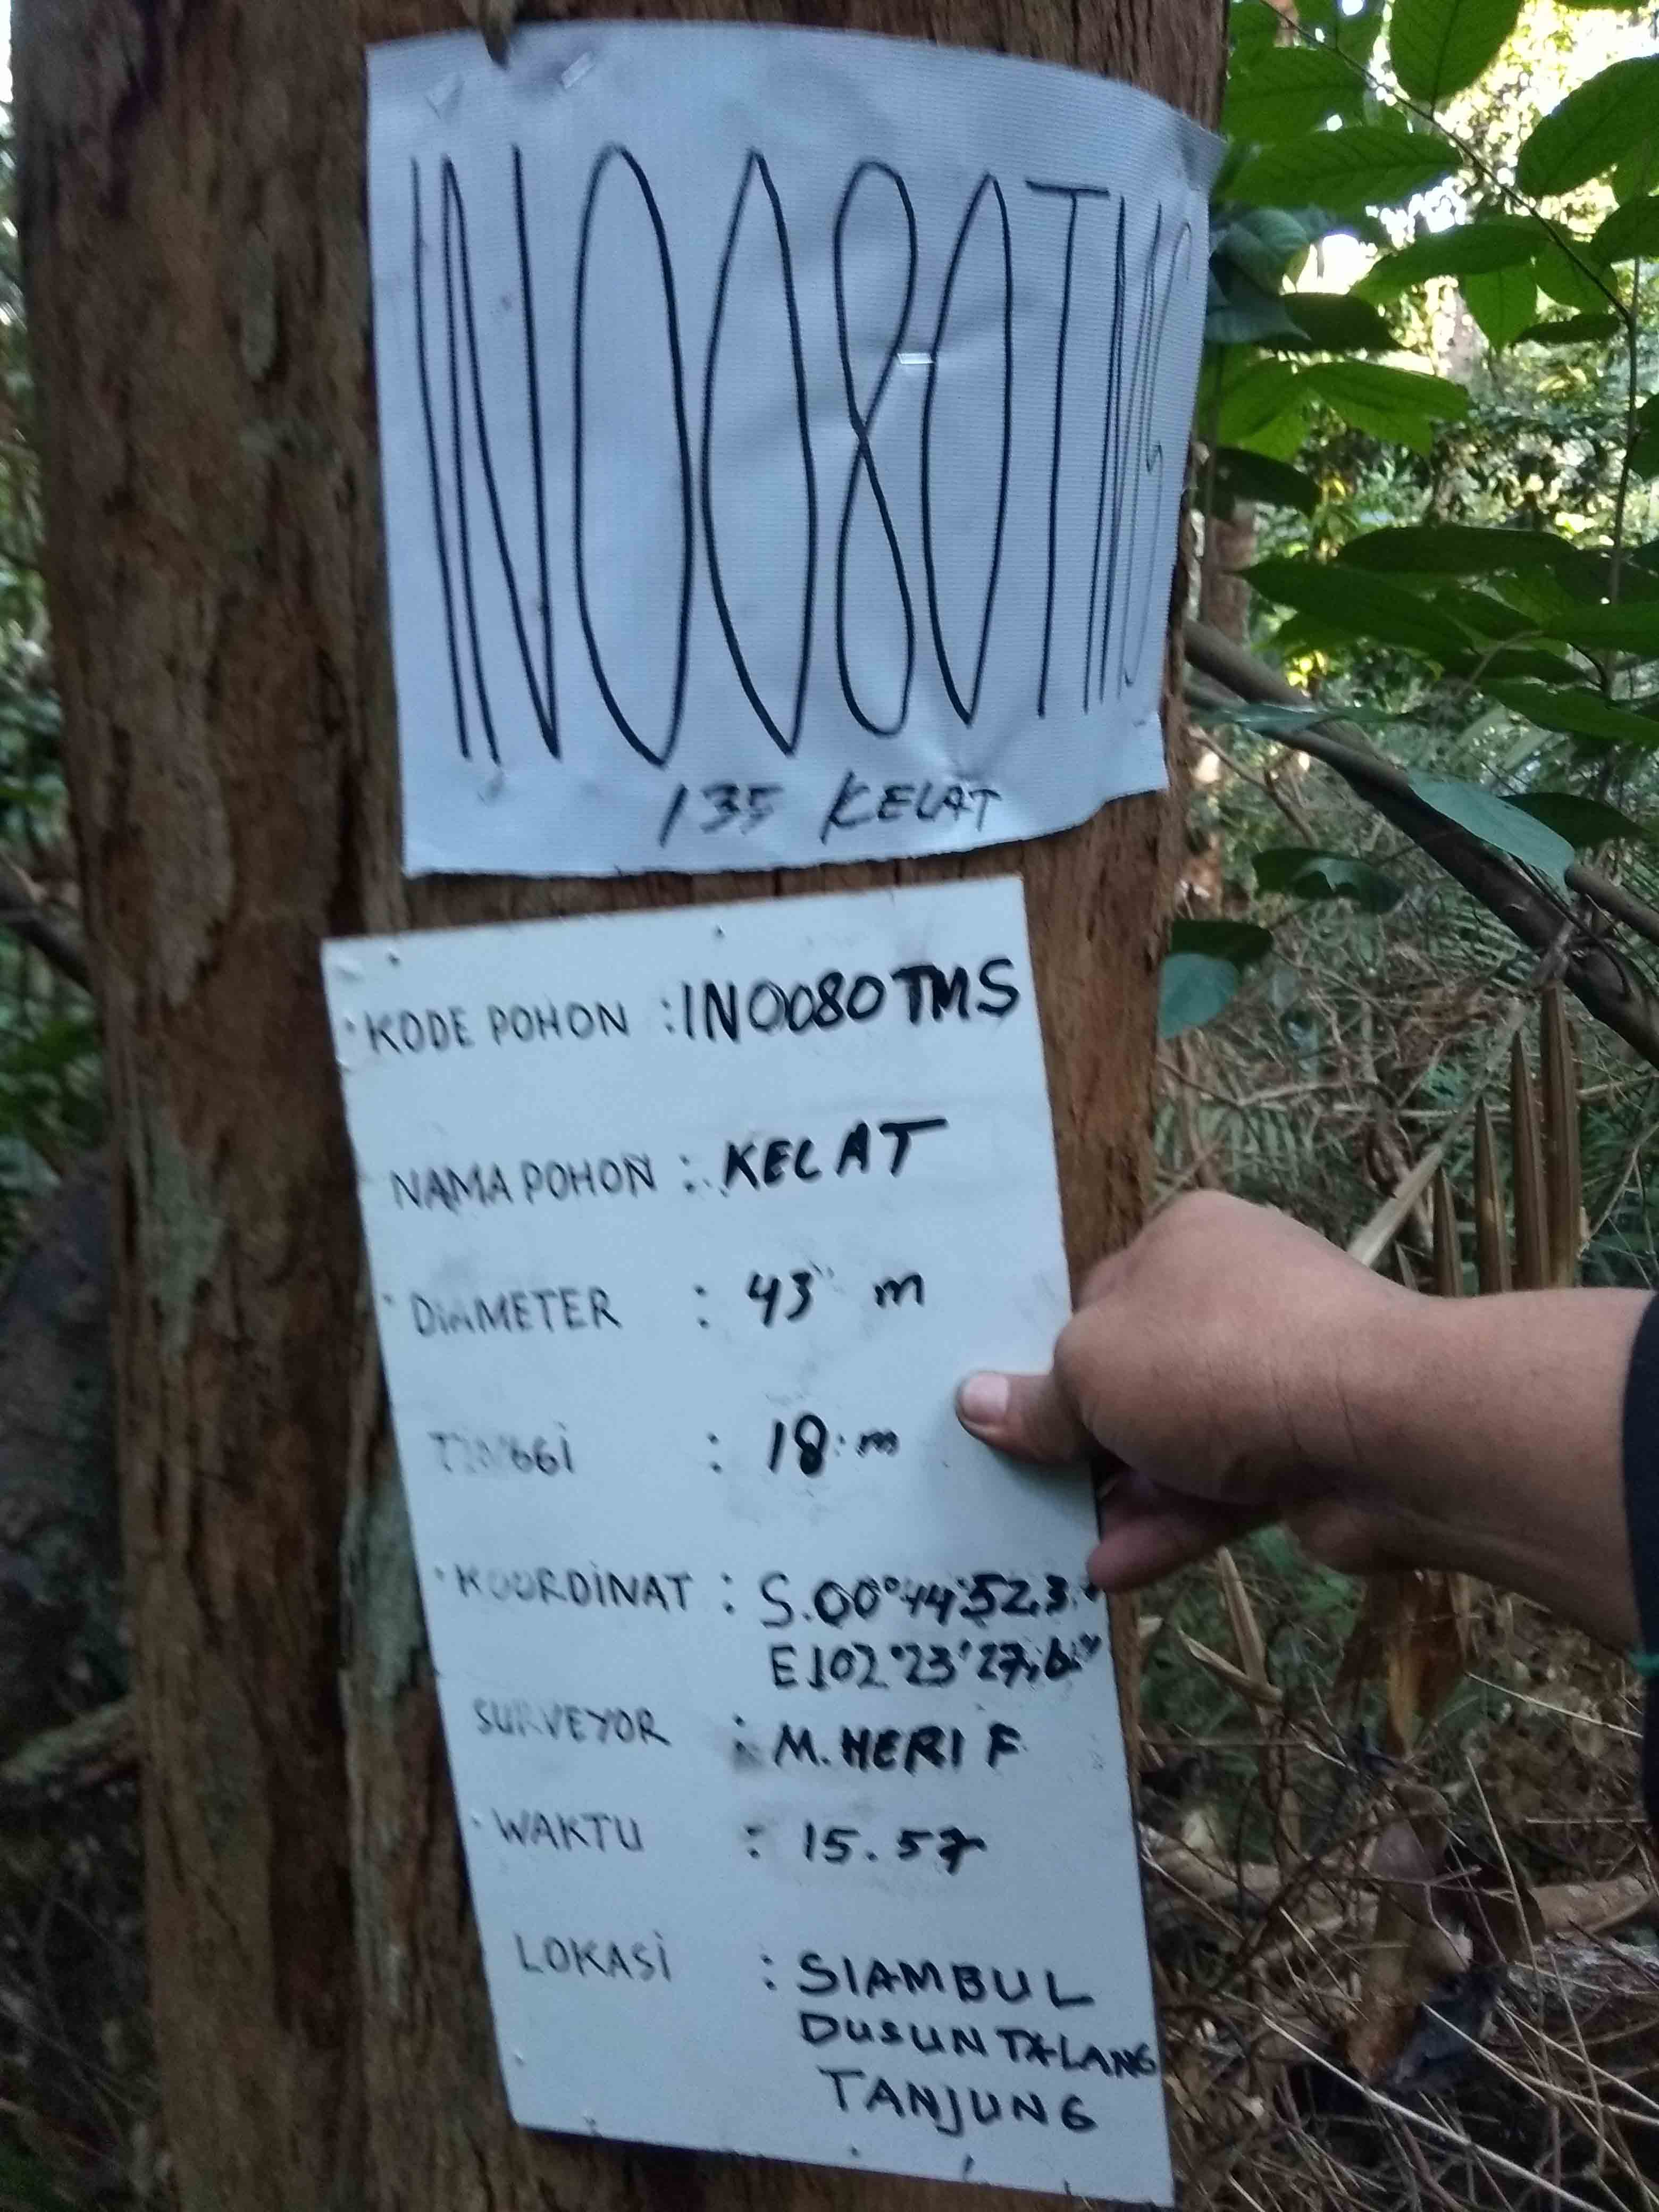 IN0080TMS
135 KELAT
KODE POHON : IN0080TMS
NAMA POHON : KELAT
DIAMETER : 43" m
TINGGI : 18 m
KOORDINAT : S.00°44'52,3
E.102°23'27,6"
SURVEYOR : M. HERI F
WAKTU : 15.57
LOKASI : SIAMBUL
DUSUN TALANG
TANJUNG